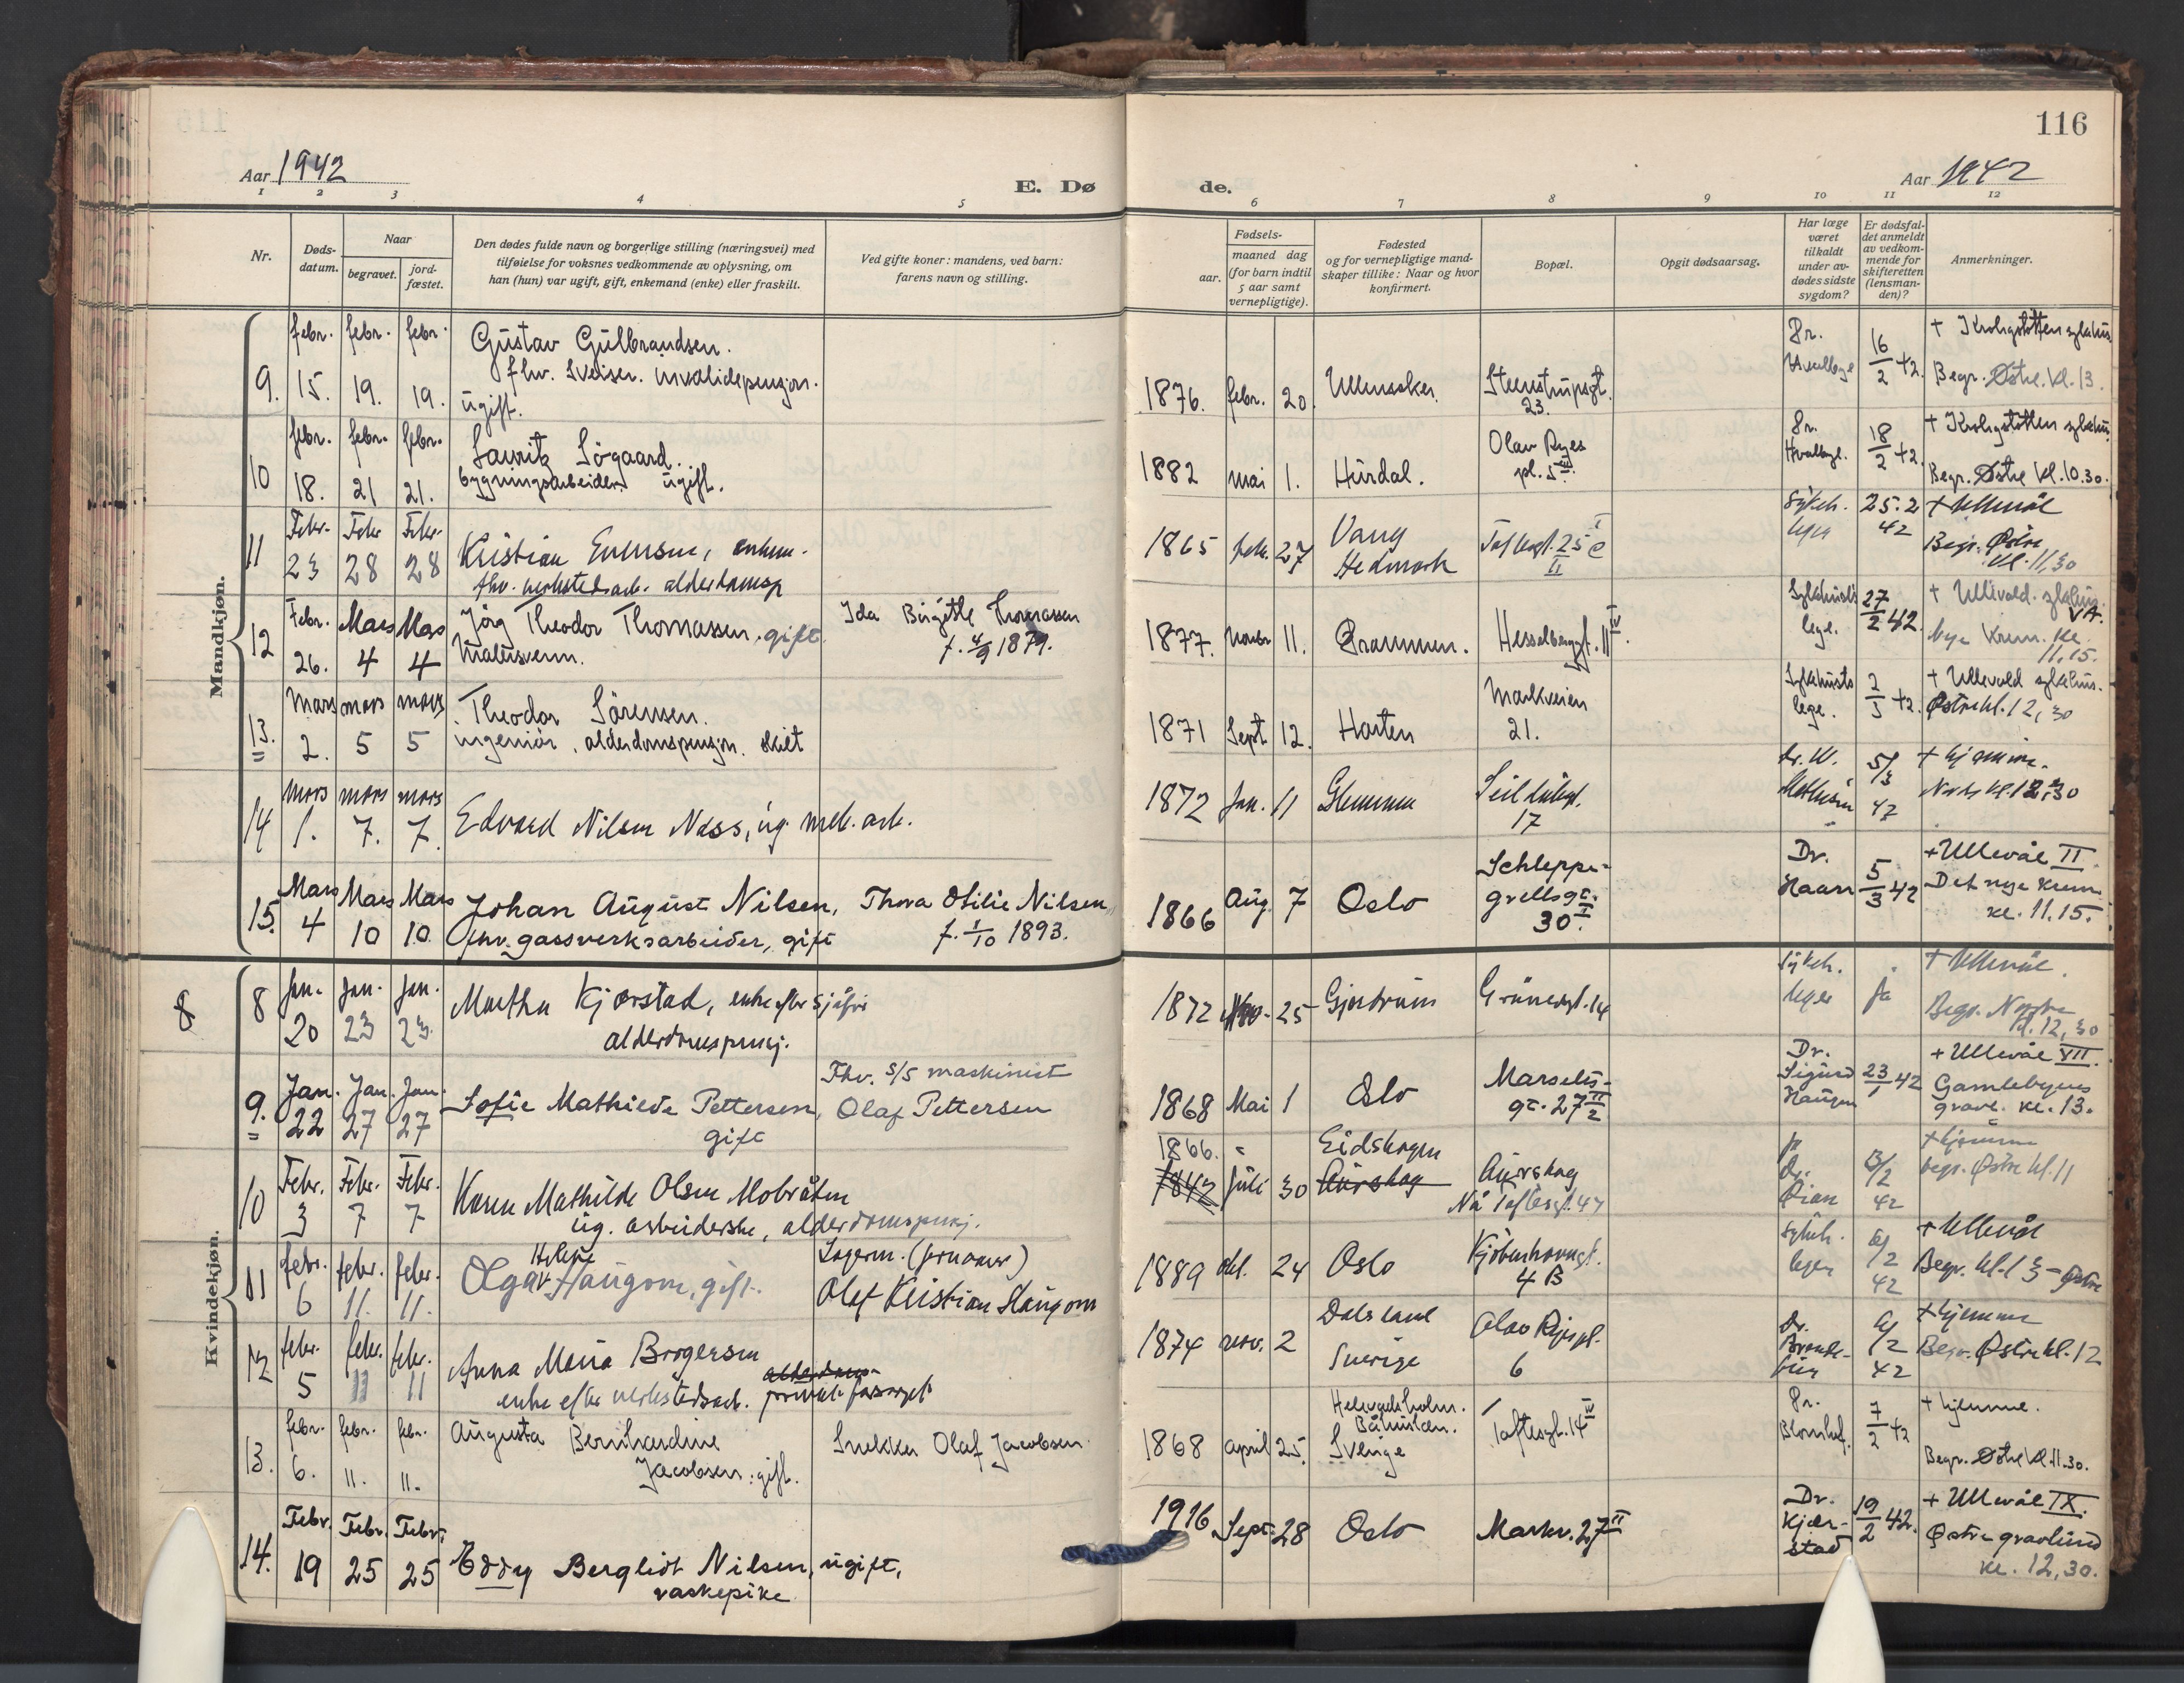 116
Aar 1942
E. Dø de.
Aar 1942
1 2 3 4 5 6 7 8 9 10 11 12
Nr.
Døds-datum.
Naar
begravet.
jord-fæstet.
Den dødes fulde navn og borgerlige stilling (næringsvei) med
tilføielse for voksnes vedkommende av oplysning, om
han (hun) var ugift, gift, enkemand (enke) eller fraskilt.
Ved gifte koner: mandens, ved barn:
farens navn og stilling.
Fødsels-
aar.
maaned dag
(for barn indtil
5 aar samt
vernepligtige).
Fødested
og for vernepligtige mand-
skaper tillike: Naar og hvor
konfirmert.
Bopæl.
Opgit dødsaarsag.
Har læge
været
tilkaldt
under av-
dødes sidste
sygdom?
Er dødsfal-
det anmeldt
av vedkom-
mende for
skifteretten
(lensman-
den)?
Anmerkninger.
Mandkjøn.
9. febr. 15. febr. 19. febr. 19.
Gustav Gulbrandsen.
fhv. sveiser. invalidepensjon.
ugift.
1876. febr. 20. Ullensaker. Steenstrupsgt. 23.
Dr. 16/2 42.
+ Krohgstøtten sykehus
Begr. Østre. kl. 13.
10 febr. 18. febr. 21 febr. 21.
Lauritz Søgaard.
bygningsarbeider. ugift.
1882 mai 1. Hurdal. Olav Ryes pl. 5
Dr. 18/2 42.
+ Krohgstøtten sykehus
Begr. Østre kl. 10.30.
11 Febr. 23 Febr 28 Febr. 28
Kristian Evensen, enkem.
fhv. verkstedsarb. alderdomsp
1865 feb. 27 Vang Hedmark Toftesgt. 25
Sykeh. lege 25.2 42
+ Ullevål
Begr. Østre
kl. 11,30
12 Febr. 26. Mars 4 Mars 4
Jörg Theodor Thomassen, gift.
malersvenn.
Ida Birgitte Thomassen
f. 4/9 1879.
1877. Novbr 11. Drammen. Hesselbergsgt. 11 IV.
Sykehuslege. 27/2 42.
+ Ullevald. sykehus
Nye Krem. kl. 11.15.
13. Mars 2. mars 5 mars 5
Theodor Sörensen.
ingeniör, alderdomspensjon. skilt
1871 Sept 12. Horten Markveien 21.
Sykehusets lege. 2/3 42.
+ Ullevald sykehus.
Østre kl. 12,30
14 Mars 1. mars 7. mars 7.
Edvard Nilsen Næss, ug. mek. arb.
1872 Jan. 11 Glemmen Seilduksgt. 17
Dr. W. 5/3 42
+ hjemme.
Nordre kl. 12,30
15. Mars 4 Mars 10 Mars 10
Johan August Nilsen,
fhv. gassverksarbeider, gift
Thora Otilie Nilsen,
f. 1/10 1893.
1866 Aug 7 Oslo Schleppe-
grellsgt.
30 I.
Dr. Haarr 5/3 42
+ Ullevål II.
Det nye krem
kl. 11.15.
Kvindekjøn.
8
8 Jan. 20 Jan. 23 Jan. 23.
Martha Kjærstad, enke efter sjåfør
alderdomspensj.
1872 Nov. 25 Gjerdrum Grünersgt. 14
Sykeh. lege ja
+ Ullevål.
Begr. Nordre
kl. 12,30
9. Jan. 22 Jan. 27 Jan. 27
Sofie Mathilde Pettersen,
gift
Fhv. s/s maskinist
Olaf Pettersen
1868 Mai 1 Oslo Marselis-
gt. 27 II/2
Dr. Sigurd Haugen 23/1 42
+ Ullevål VII.
Gamlebyens
gravl. kl. 13.
10 Febr. 3 Febr. 7 Febr. 7
Karen Mathilde Olsen Mobråten
ug. arbeiderske, alderdomspensj.
1866.
1843 juli 30 Eidskogen
Aurskog
Aurskog
Nå Toftesgt. 47
ja
Dr. 3/2 42
+ hjemme
begr. Østre kl. 11
11 febr. 6 febr. 11. febr. 11.
Olga Helene Haugom, gift.
Lagerm.
Olaf Kristian Haugom
1889 okt. 24 Oslo Kjøbenhavnsgt.
4 B
Sykeh. lege 6/2 42
+ Ullevål
Begr. kl. 13 - Østre
12 febr. 5 febr. 11 febr. 11
Anna Maria Brogersen
enke efter verkstedsarb. privat forsørget
1874 nov. 2 Dalsland
Sverige
Olav Ryespl.
6
Dr. 6/2 42
+ hjemme
Begr. Østre kl. 12
13. febr. 6. febr. 11. febr. 11.
Augusta Bernhardine
Jacobsen. gift.
Snekker Olaf Jacobsen
1868 april 25. Båhuslen.
Sverige
Toftesgt. 14 IV
Dr. 7/2 42
+ hjemme.
Begr. Østre kl. 11.30.
14. Febr. 19 Febr. 25 Febr. 25
Eddy Bergliot Nilsen, ugift,
vaskepike
1916 Sept. 28 Oslo Markv. 27 II
Dr. Kjær-
stad
19/2 42.
+ Ullevål IX.
Østre gravlund
kl. 12,30.